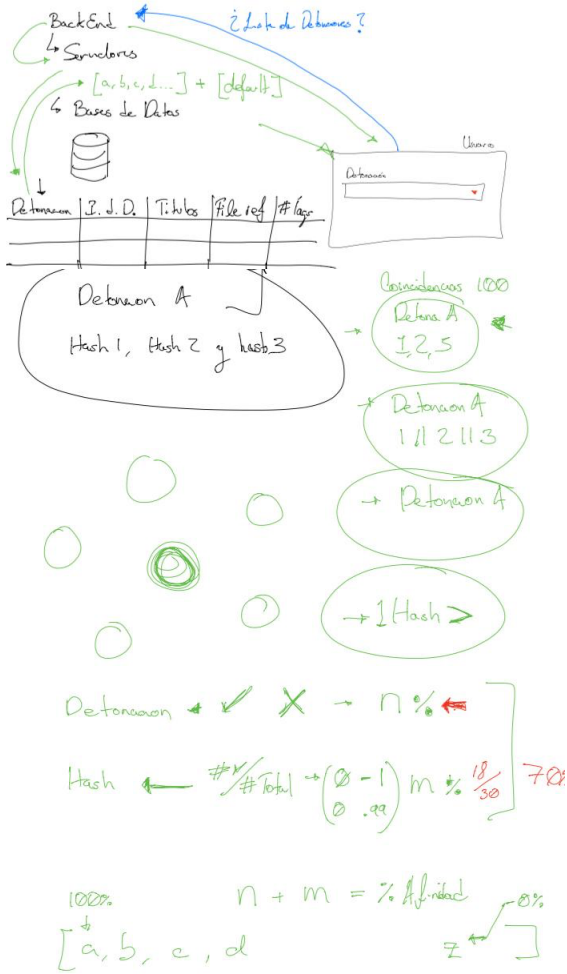 BackEnd
¿Lista de Detonaciones?
↳ Servidores
→ [a, b, c, d...] + [default]
↳ Bases de Datos
Usuario
Detonación
Detonacion | I.d.D. | Titulos | File ref | # Tags
Detonacion A
Hash 1, Hash 2 y hash 3
Coincidencias 100
→ Detona A
1, 2, 3
→ Detonacion A
1 || 2 || 3
→ Detonacion A
→ 1 Hash >
Detonacion ← ✓ X → n % ←
Hash ← #✓/#Total → (0 - 1 m % 18/30 70%
0 .99)
n + m = % Afinidad
100% 0%
[a, b, c, d z]